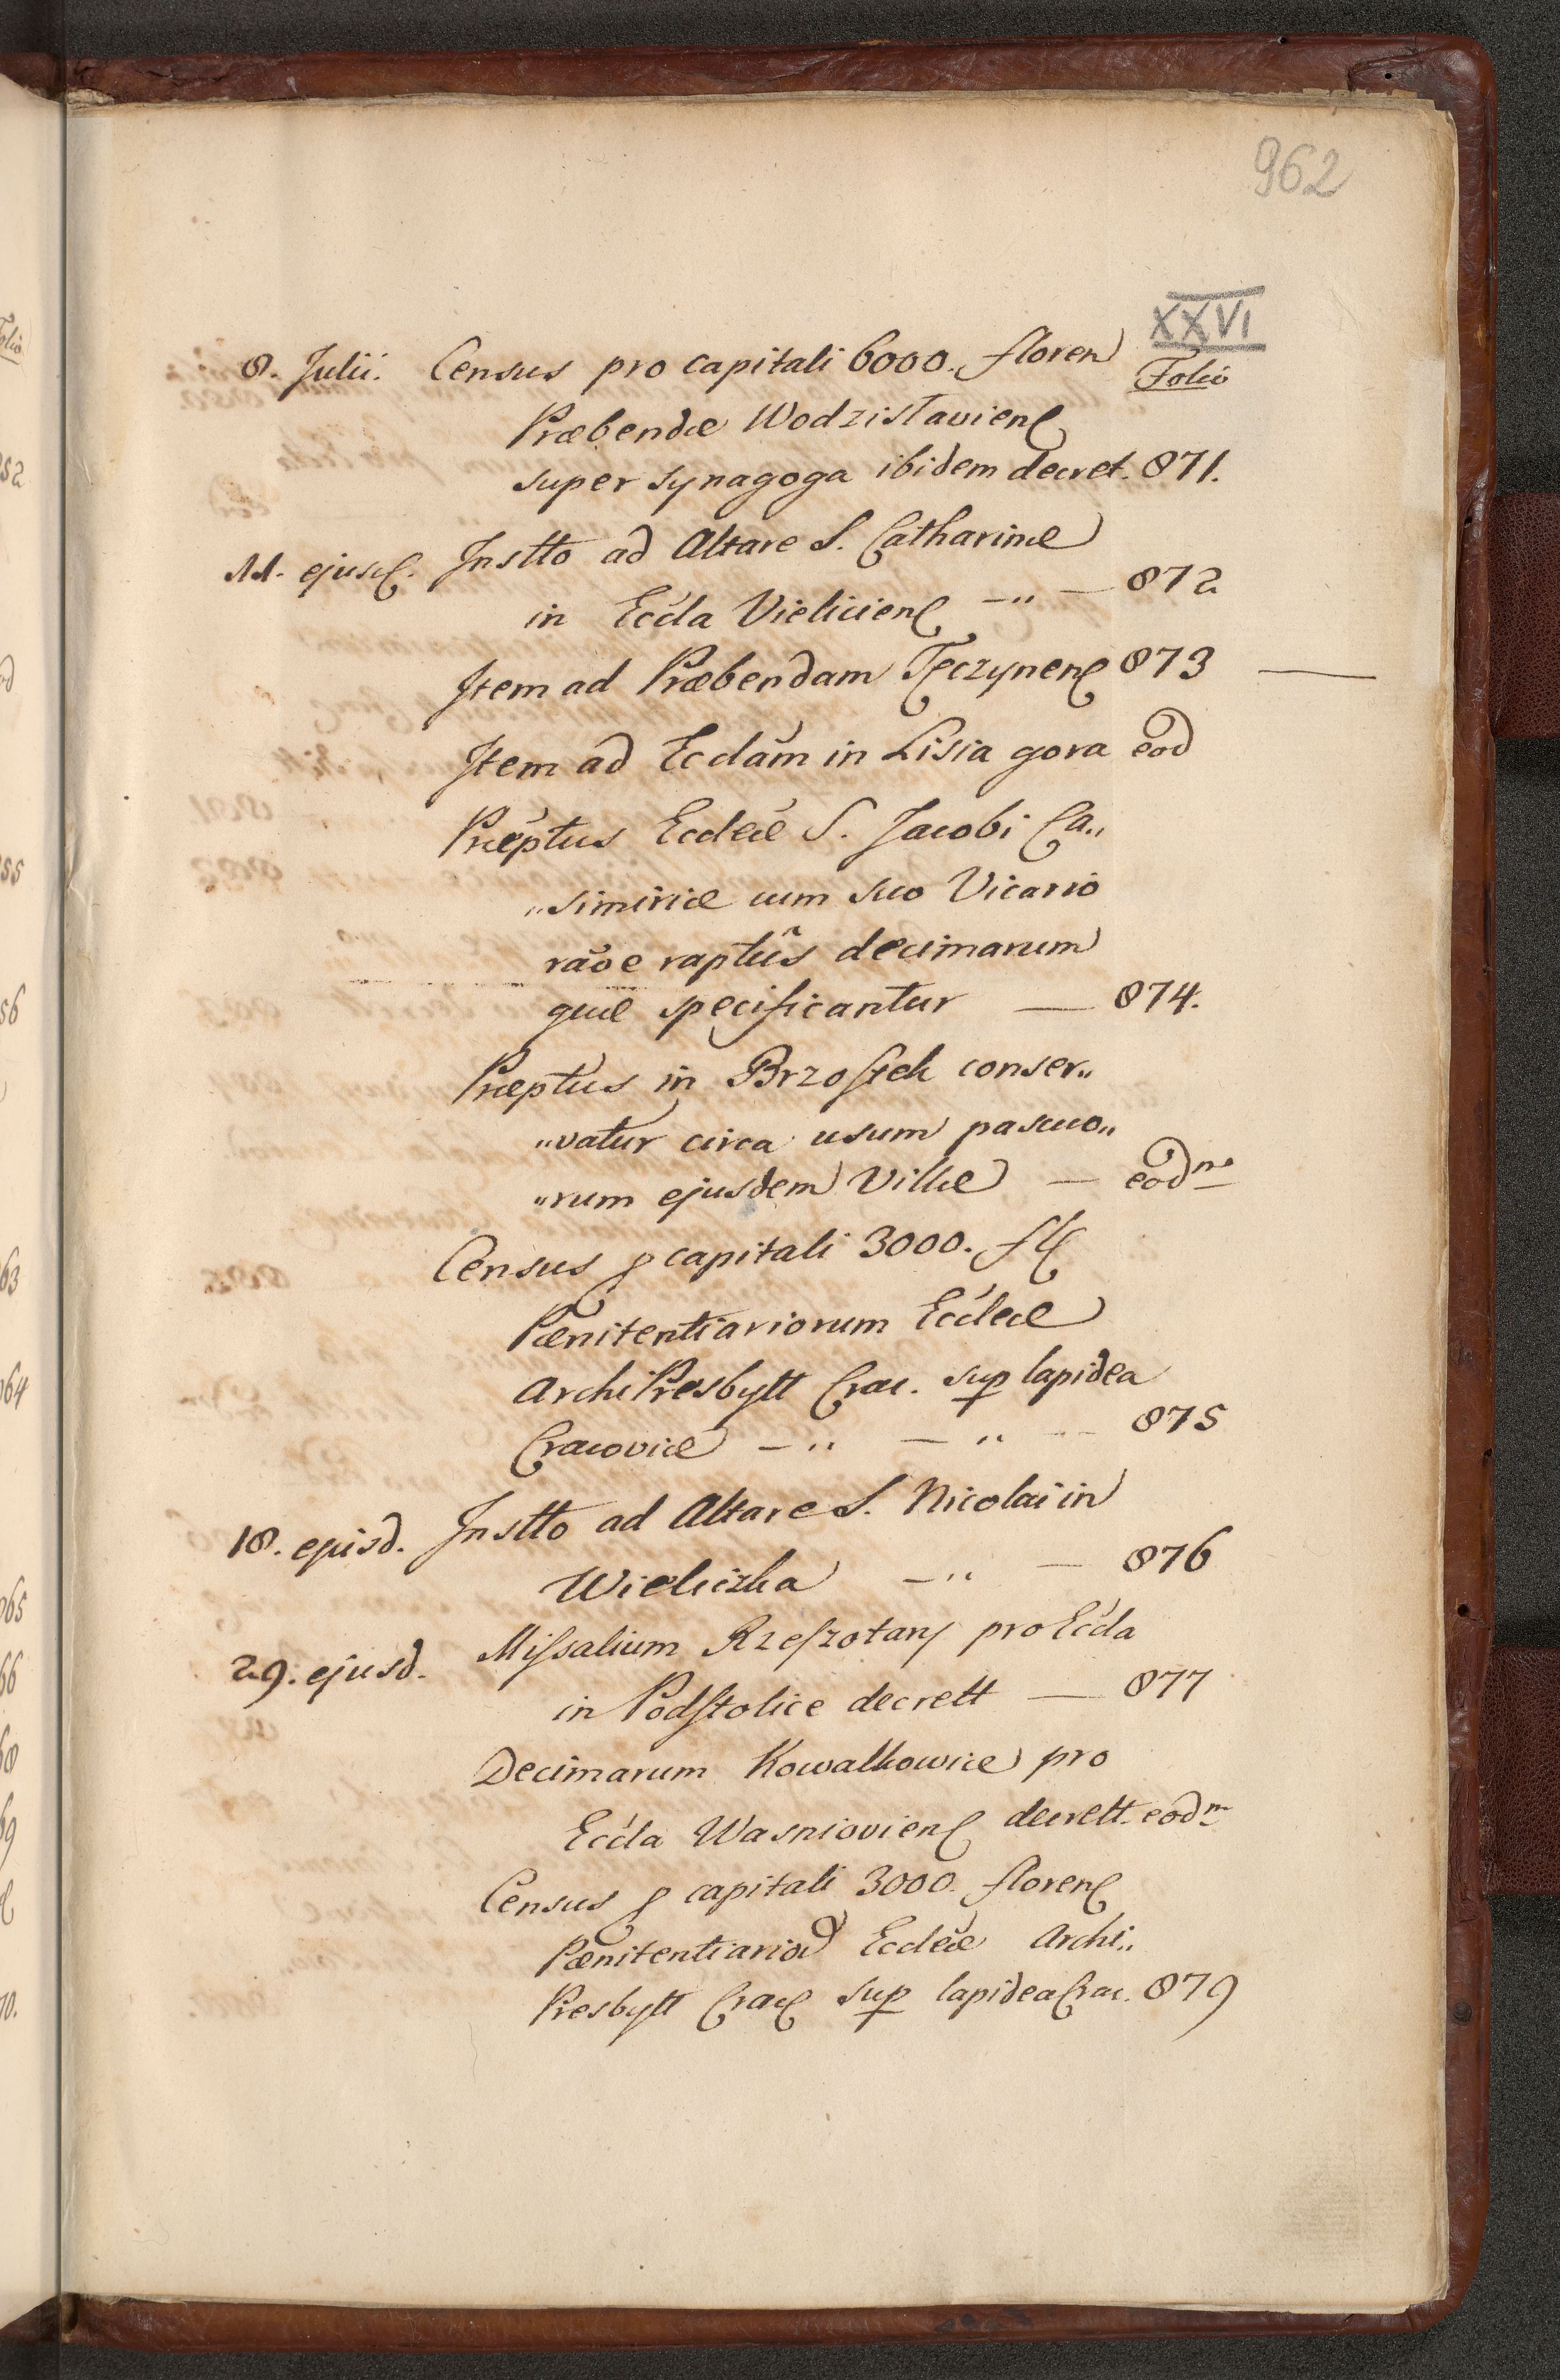 962
XXVI
Folio
8. Julii. Census pro capitali 6000. floren
Præbendæ Wodzislavien
super synagoga ibidem decret. 871.
11. ejusd. Instto ad Altare S. Catharinæ
in Eccla Vielicien -„ — 872
Item ad Præbendam Tęczynen 873 —
Item ad Ecclam in Lisia gora eod
Præptus Eccleæ S. Jacobi Ca„
„simiriæ cum suo Vicario
raoe raptus decimarum
quæ specificantur — 874.
Præptus in Brzostek conser„
„vatur circa usum pascuo„
„rum ejusdem Villæ — eodm
Census p capitali 3000. fl
Pænitentiariorum Eccleæ
ArchiPresbytt Crac. sup lapidea
Cracoviæ -„ -„ 875
18. ejusd. Instto ad Altare S. Nicolai in
Wieliczka -„ — 876
29. ejusd. Missalium Rzeszotary pro Eccla
in Podstolice decrett — 877
Decimarum Kowalkowice pro
Eccla Wasniovien decrett. eodm
Census p capitali 3000. floren
Pænitentiariod Eccleæ Archi„
Presbytt Crac sup lapidea Crac. 879